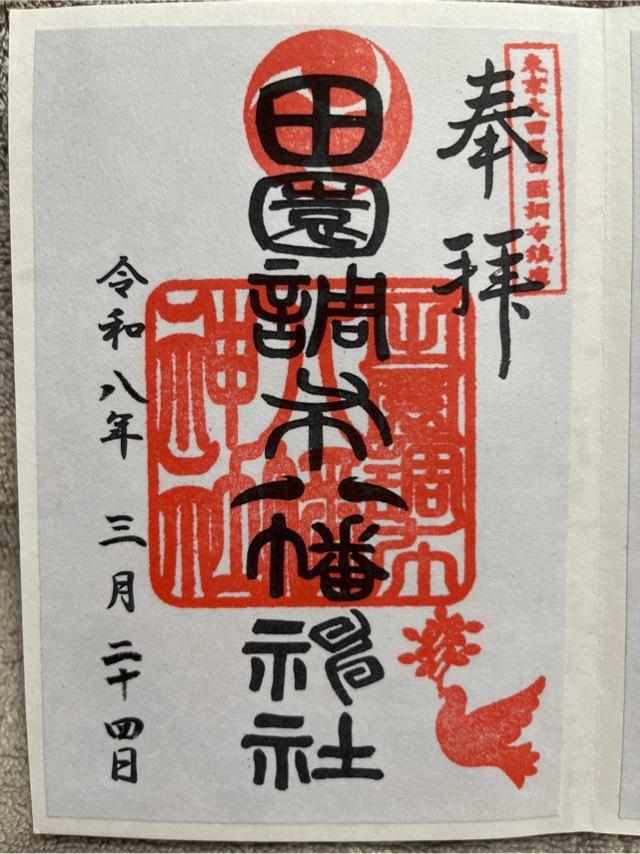 東京大田区田園調布鎮座
奉拝
田園調布八幡神社
田園調布
八幡
神社
令和八年 三月 二十四日